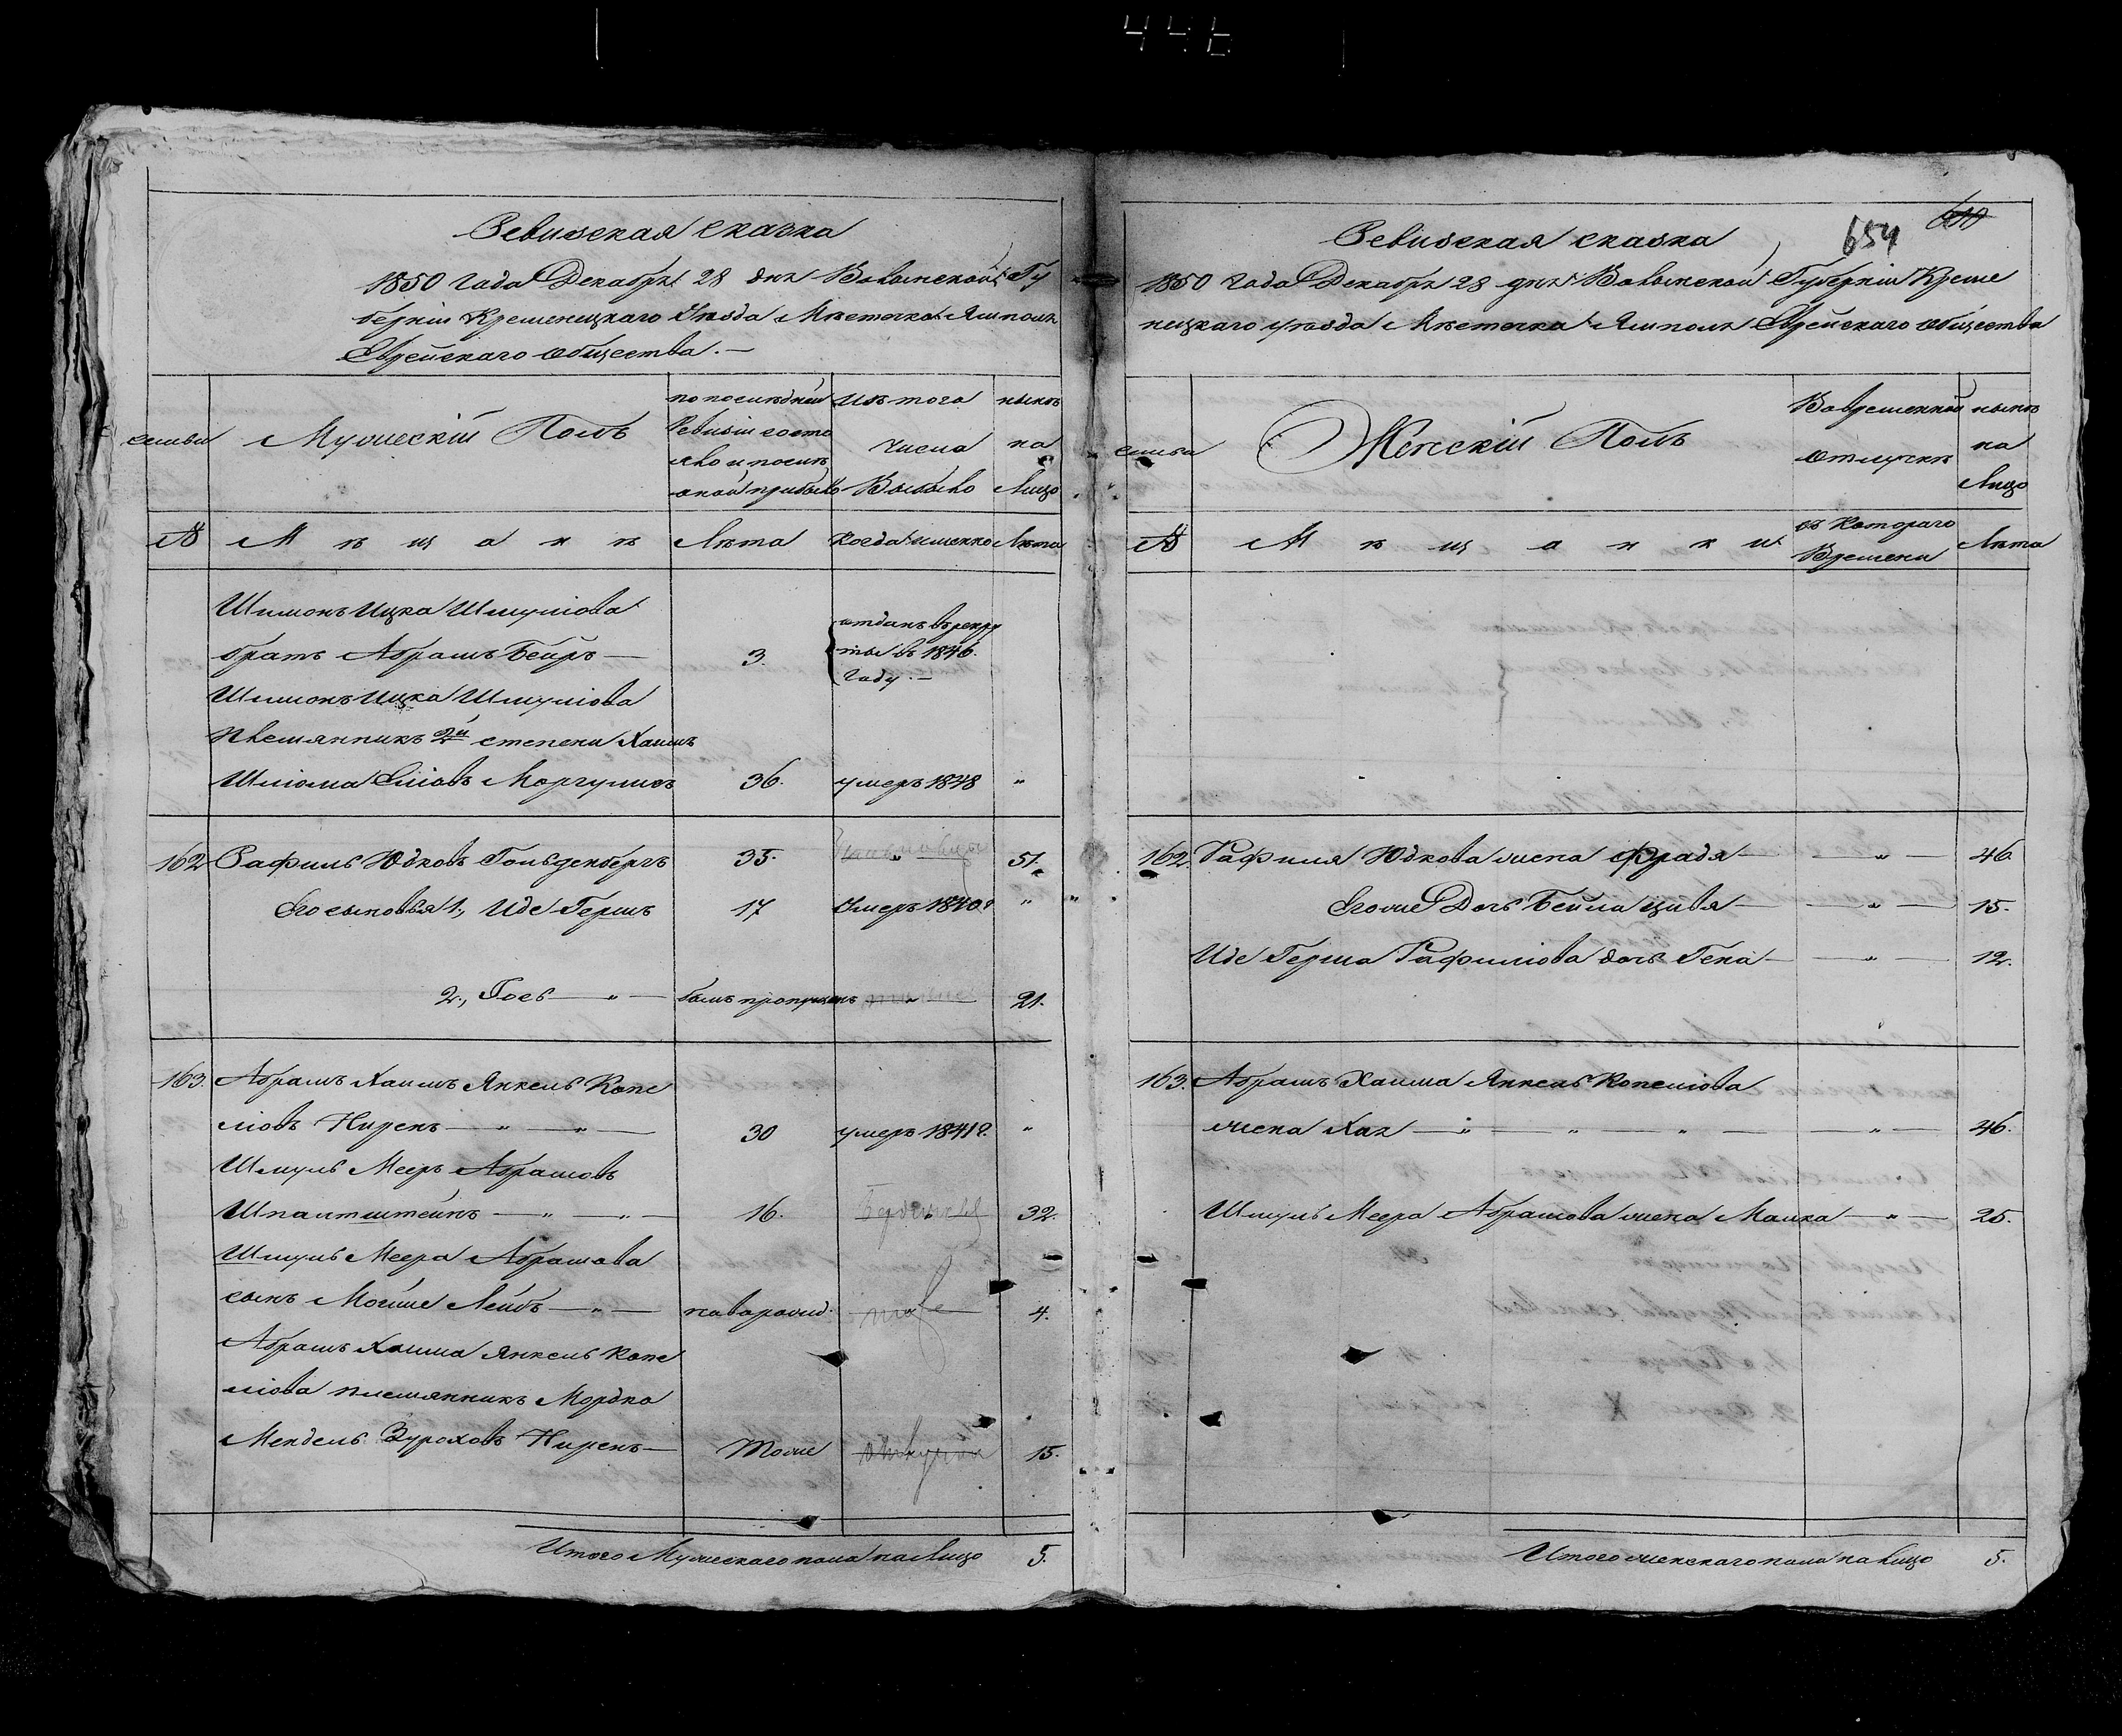 Ревизская сказка
1850 года Декабря 28 дня Волынской Гу
берніи Кременецкаго Уѣзда Мѣстечка Ямполя
Еврейскаго общества. —
семьи
Мужескій Полъ
по послѣдней
Ревизіи состо
яло и послѣ
оной прибыло
изъ того
числа
Выбыло
нынѣ
на
лицо
№
Мѣщанѣ
Лѣта
Когда именно
Лѣта
Шимонъ Ицка Шмуліова
братъ Абрамъ Бейръ —
3.
отданъ въ рекру
ты въ 1846.
году. —
Шимонъ Ицка Шмуліова
племянникъ 2й степени Хаимъ
Шліома Еліовъ Моргулисъ
36.
умеръ 1848
"
162
Рафиль Юдковъ Гольденбергъ
35.
"
51.
Его сыновья 1., Иде Гершъ
17
Умеръ 1840 г
"
2., Гось — " —
былъ пропущенъ
21.
163.
Абрамъ Хаимъ Янкель Копе
ліовъ Ниренъ — " — " —
30
умеръ 1841 г.
"
Шмуль Мееръ Абрамовъ
Шпаитштейнъ — " — " —
16.
32.
Шмуль Меера Абрамова
сынъ Мойше Лейбъ — " —
новорожд.
4.
Абрамъ Хаима Янкель Копе
ліова племянникъ Мордко
Мендель Зуроховъ Ниренъ —
Тоже
15.
Итого Мужескаго пола на лицо 5.
654
Ревизская сказка
1850 года Декабря 28 дня Волынской Губерніи Креме
нецкаго уѣзда Мѣстечка Ямполя Еврейскаго общества
семьи
Женскій Полъ
Во временной
отлучкѣ
нынѣ
на
лицо
№
Мѣщанки
съ котораго
Времени
Лѣта
162.
Рафиля Юдкова жена Фрадя — " —
46.
Егоже Дочь Бейла Цивя — " —
15.
Иде Герша Рафиліова дочь Гена — " —
12.
163.
Абрамъ Хаима Янкель Копеліова
жена Хая — " — " — " — " —
46.
Шмуль Меера Абрамова жена Малка — " —
25.
Итого женскаго пола на лицо 5.